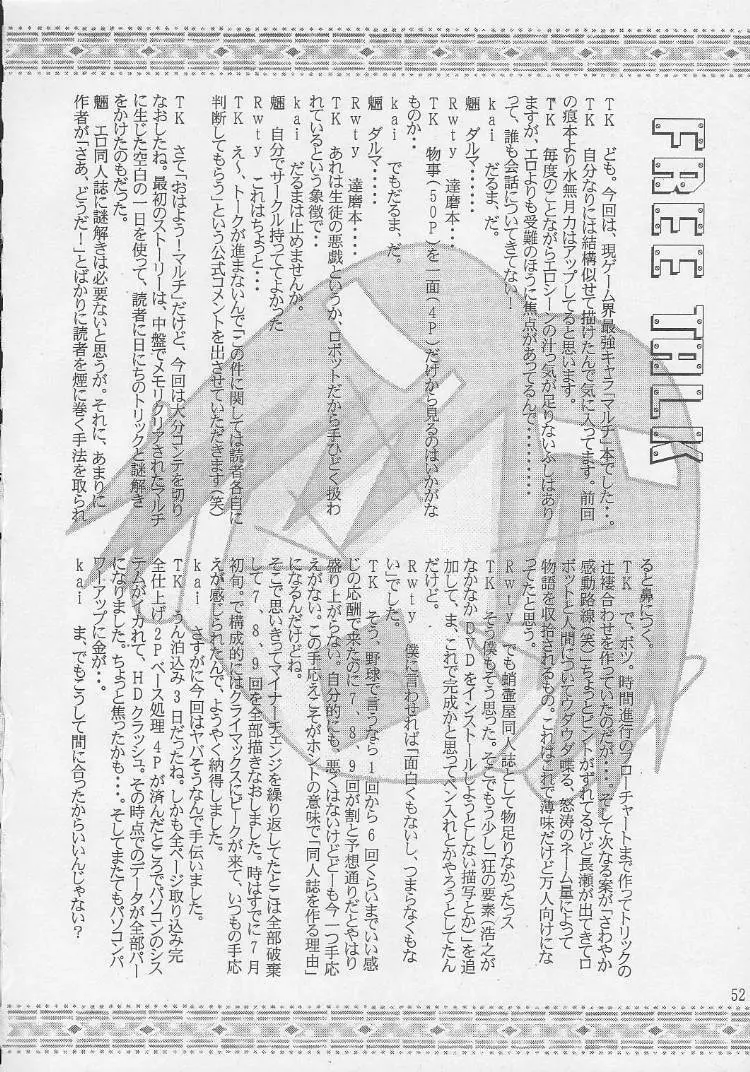 FREE TALK
TK　ども。今回は、現ゲーム界最強キャラ「マルチ」本でした・・。
TK　自分なりには結構似せて描けたんで気に入ってます。前回
の痕本より水無月力はアップしてると思います。
TK　毎度のことながらエロシーンの汁っ気が足りないふしはあり
ますが、エロよりも受難のほうに焦点があってるんで・・・・・・・・・
って、誰も会話についてきてない！
kai　だるま、だ。
魎　ダルマ・・・・・
Rwty　達磨本・・・・
TK　物事（50P）を一面（4P）だけから見るのはいかがな
ものか・・
kai　でもだるま、だ。
魎　ダルマ・・・・・
Rwty　達磨本・・・・
TK　あれは生徒の悪戯というか、ロボットだから手ひどく扱わ
れているという象徴で・・
kai　だるまは止めませんか。
魎　自分でサークル持っててよかった
Rwty　これはちょっと・・・
TK　え〜、トークが進まないんで「この件に関しては読者各自に
判断してもらう」という公式コメントを出させていただきます（笑）
TK　さて「おはよう！マルチ」だけど、今回は大分コンテを切り
なおしたね。最初のストーリーは、中盤でメモリクリアされたマルチ
に生じた空白の一日を使って、読者に日にちのトリックと謎解き
をかけたのもだった。
魎　エロ同人誌に謎解きは必要ないと思うが。それに、あまりに
作者が「さあ、どうだ！」とばかりに読者を煙に巻く手法を取られ
ると鼻につく。
TK　で、ボツ。時間進行のフローチャートまで作ってトリックの
辻褄合わせを作っていたのだが・・・・。そして次なる案が「さわやか
感動路線（笑）」ちょっとピントがずれてるけど長瀬が出てきてロ
ボットと人間についてウダウダ喋る、怒涛のネーム量によって
物語を収拾されるもの。これはこれで薄味だけど万人向けにな
ってたと思う。
Rwty　でも蛸壷屋同人誌として物足りなかったっス
TK　そう僕もそう思った。そこでもう少し「狂の要素（浩之が
なかなかDVDをインストールしようとしない描写とか）」を追
加して、ま、これで完成かと思ってペン入れとかやろうとしてたん
だけど。
Rwty　僕に言わせれば「面白くもないし、つまらなくもな
い」でした。
TK　そう、野球で言うなら1回から6回くらいまでいい感
じの応酬で来たのに7、8、9回が割と予想通りだとやはり
盛り上がらない。自分的にも。悪くはないけどどーも今一つ手応
えがない。この手応えこそがホントの意味で「同人誌を作る理由」
になるんだけどね。
そこで思いきってマイナーチェンジを繰り返してたとこは全部破棄
して7、8、9回を全部描きなおしました。時はすでに7月
初旬。で構成的にはクライマックスにピークが来て、いつもの手応
えが感じられたんで、ようやく納得しました。
kai　さすがに今回はヤバそうなんで手伝いました。
TK　うん泊込み3日だったね。しかも全ページ取り込み完
全仕上げ2Pベース処理4Pが済んだところでパソコンのシス
テムがイカれて、HDクラッシュ。その時点でのデータが全部パー
になりました。ちょっと焦ったかも・・・。そしてまたてもパソコンパ
ワーアップに金が・・。
kai　ま、でもこうして間に合ったからいいんじゃない？
52